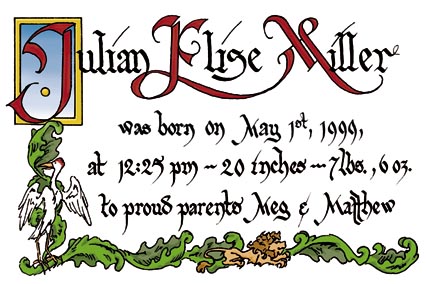 Julian Elise Miller
was born on May 1st, 1999,
at 12:25 pm ~ 20 inches ~ 7lbs., 6 oz.
to proud parents Meg & Matthew